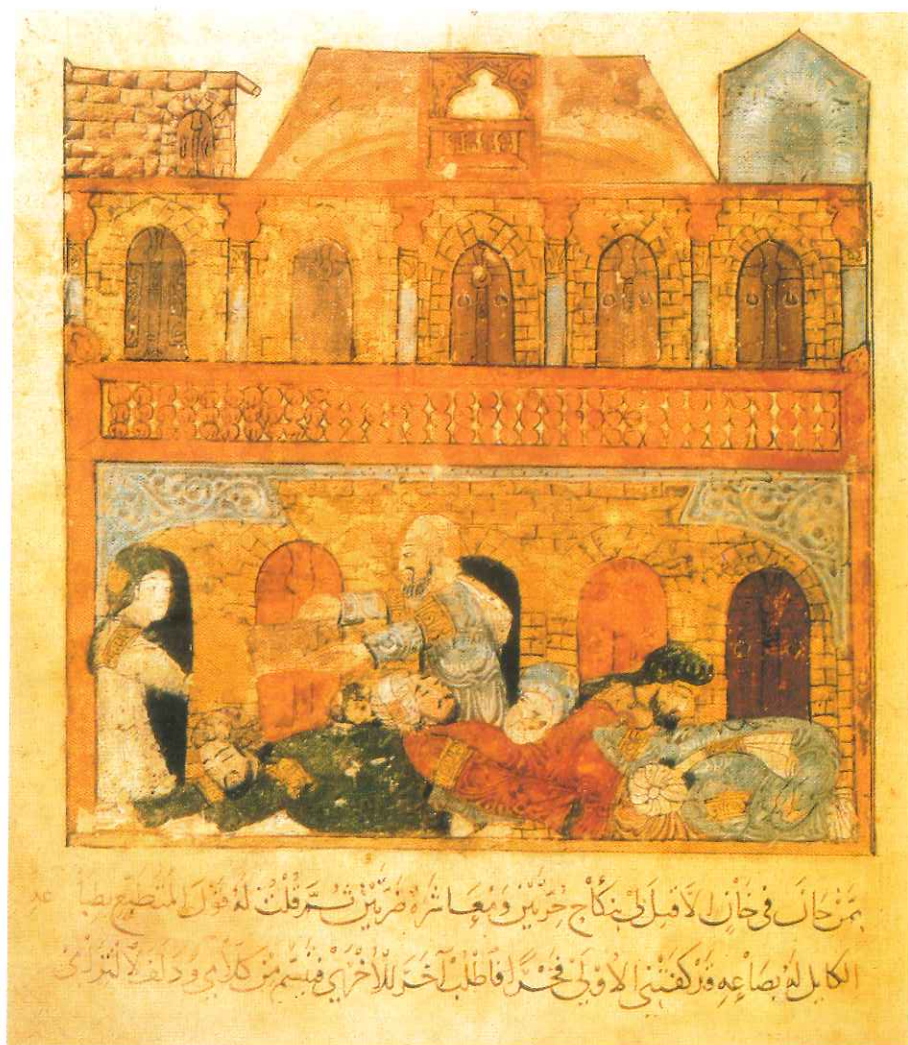 بمن خان في خان لا قبل لي بنكاح حرتين ومعاشرة ضرتين ثم قلت له قول المتطبع بطباعه
الكايل له بصاعه قد كفتني الاولى فخرا فاطلب آخر للاخرى فتبسم من كلامي ودلف لالتزامي